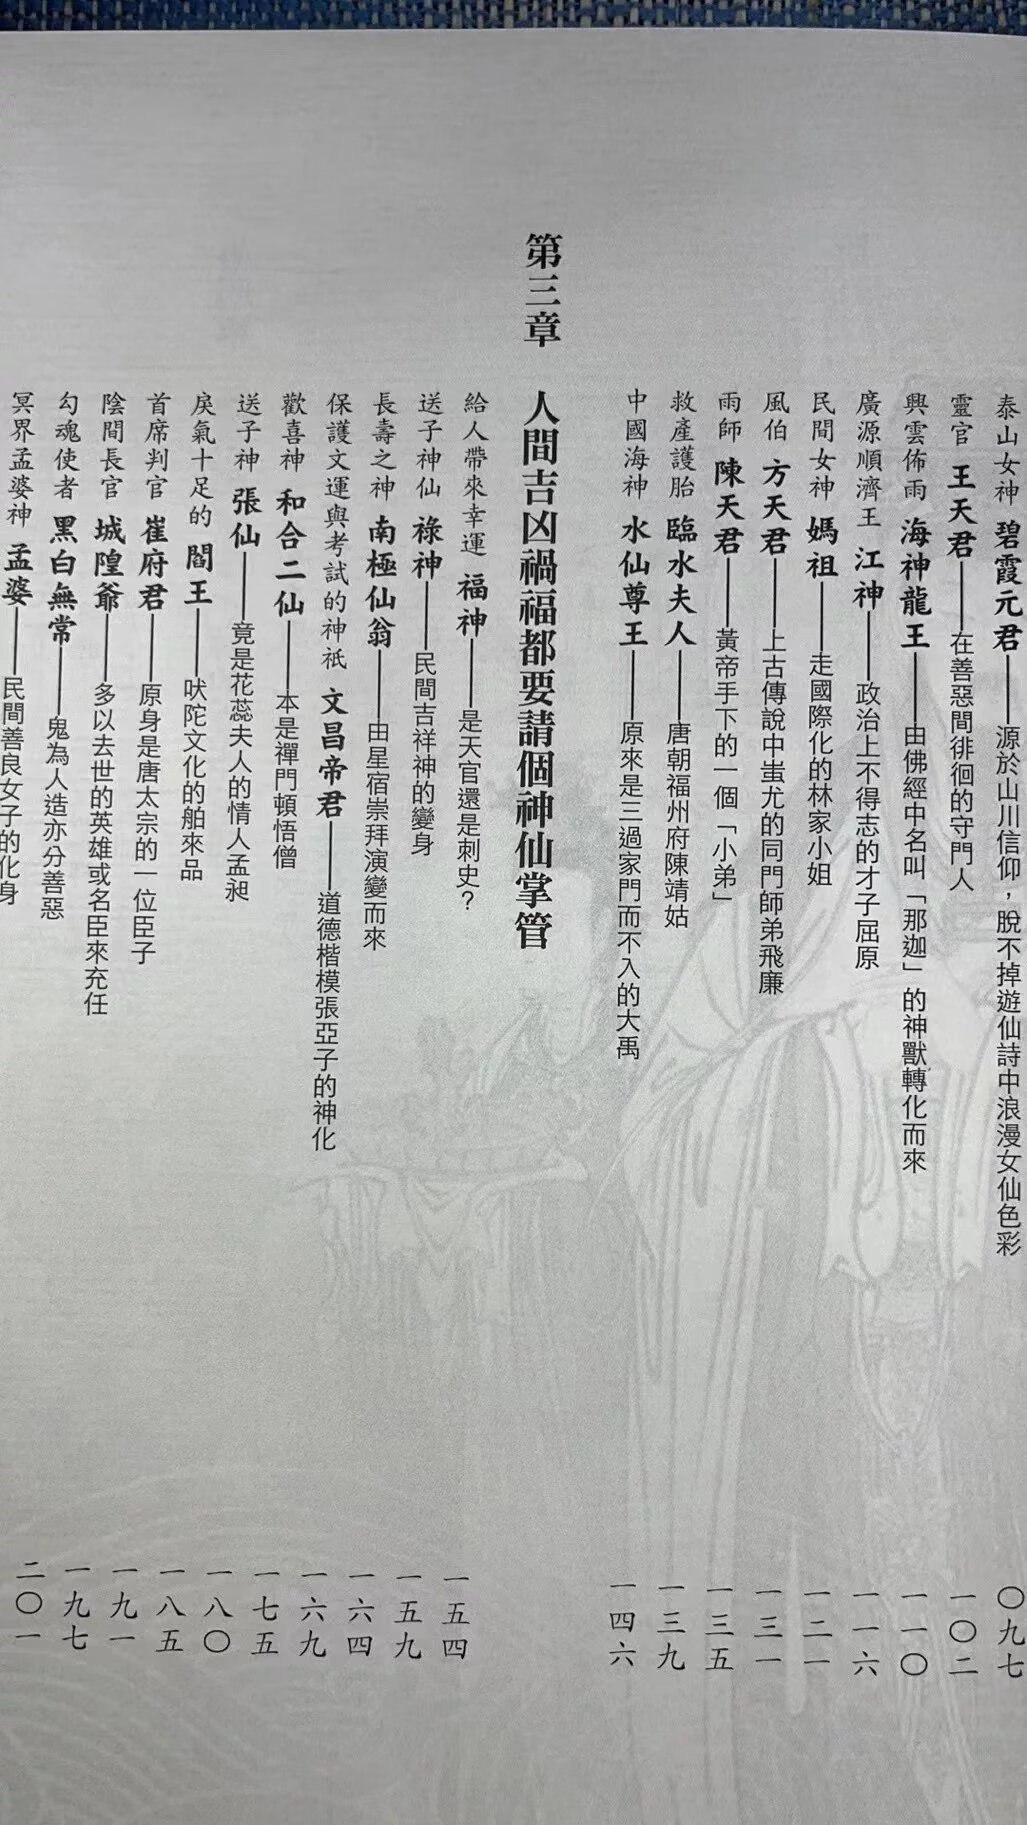 泰山女神 碧霞元君——源於山川信仰，脫不掉遊仙詩中浪漫女仙色彩 〇九七
靈官 王天君——在善惡間徘徊的守門人 一〇二
興雲佈雨 海神龍王——由佛經中名叫「那迦」的神獸轉化而來 一一〇
廣源順濟王 江神——政治上不得志的才子屈原 一一六
民間女神 媽祖——走國際化的林家小姐 一二一
風伯 方天君——上古傳說中蚩尤的同門師弟飛廉 一三一
雨師 陳天君——黃帝手下的一個「小弟」 一三五
救產護胎 臨水夫人——唐朝福州府陳靖姑 一三九
中國海神 水仙尊王——原來是三過家門而不入的大禹 一四六
第三章 人間吉凶禍福都要請個神仙掌管
給人帶來幸運 福神——是天官還是刺史？ 一五四
送子神仙 祿神——民間吉祥神的變身 一五九
長壽之神 南極仙翁——由星宿崇拜演變而來 一六四
保護文運與考試的神祇 文昌帝君——道德楷模張亞子的神化 一六九
歡喜神 和合二仙——本是禪門頓悟僧 一七五
送子神 張仙——竟是花蕊夫人的情人孟昶 一八〇
戾氣十足的 閻王——吠陀文化的舶來品 一八五
首席判官 崔府君——原身是唐太宗的一位臣子 一九一
陰間長官 城隍爺——多以去世的英雄或名臣來充任 一九七
勾魂使者 黑白無常——鬼為人造亦分善惡 二〇一
冥界孟婆神 孟婆——民間善良女子的化身